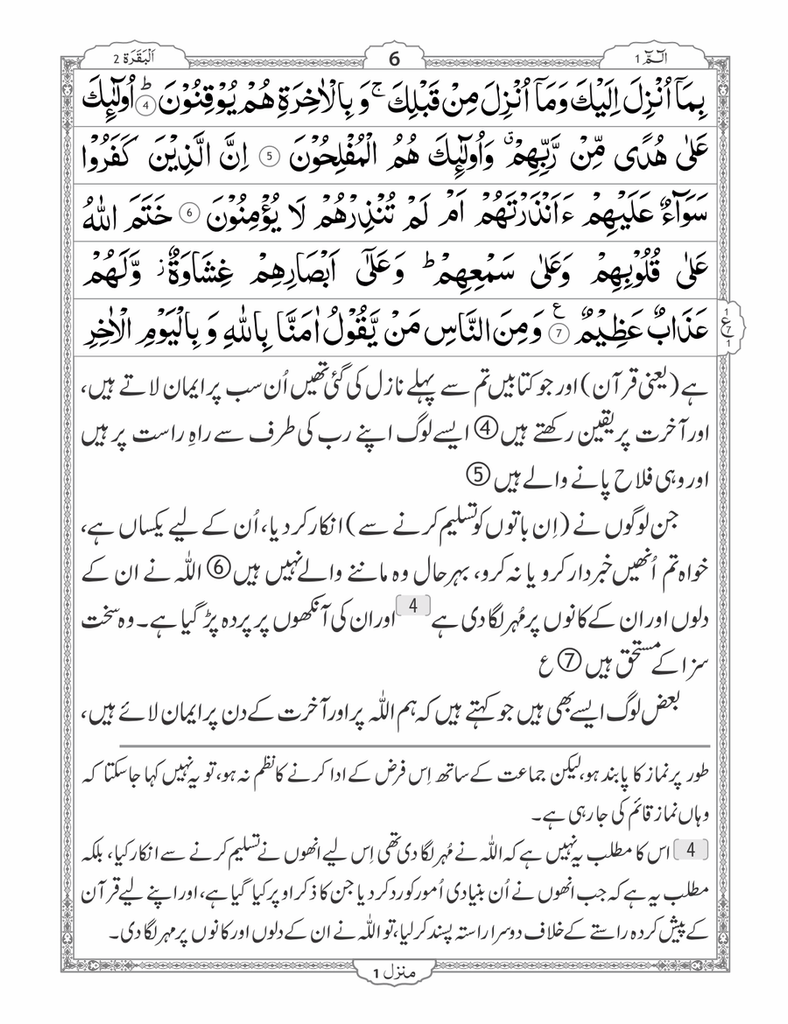 الٓمّٓ 1
6
اَلْبَقَرَة 2
بِمَآ اُنْزِلَ اِلَيْكَ وَمَآ اُنْزِلَ مِنْ قَبْلِكَ ۚ وَ بِالْاٰخِرَةِ هُمْ يُوْقِنُوْنَ ؕ ④ اُولٰٓئِكَ
عَلٰى هُدًى مِّنْ رَّبِّهِمْ ۗ وَاُولٰٓئِكَ هُمُ الْمُفْلِحُوْنَ ⑤ اِنَّ الَّذِيْنَ كَفَرُوْا
سَوَآءٌ عَلَيْهِمْ ءَاَنْذَرْتَهُمْ اَمْ لَمْ تُنْذِرْهُمْ لَا يُؤْمِنُوْنَ ⑥ خَتَمَ اللّٰهُ
عَلٰى قُلُوْبِهِمْ وَعَلٰى سَمْعِهِمْ ؕ وَعَلٰٓى اَبْصَارِهِمْ غِشَاوَةٌ ؗ وَّلَهُمْ
عَذَابٌ عَظِيْمٌ ⑦ ع وَمِنَ النَّاسِ مَنْ يَّقُوْلُ اٰمَنَّا بِاللّٰهِ وَ بِالْيَوْمِ الْاٰخِرِ
1
ع
7
1
ہے (یعنی قرآن) اور جو کتابیں تم سے پہلے نازل کی گئی تھیں اُن سب پر ایمان لاتے ہیں،
اور آخرت پر یقین رکھتے ہیں ④ ایسے لوگ اپنے رب کی طرف سے راہِ راست پر ہیں
اور وہی فلاح پانے والے ہیں ⑤
جن لوگوں نے (اِن باتوں کو تسلیم کرنے سے) انکار کر دیا، اُن کے لیے یکساں ہے،
خواہ تم اُنھیں خبردار کرو یا نہ کرو، بہرحال وہ ماننے والے نہیں ہیں ⑥ اللّٰہ نے ان کے
دلوں اور ان کے کانوں پر مُہر لگا دی ہے 4 اور ان کی آنکھوں پر پردہ پڑ گیا ہے۔ وہ سخت
سزا کے مستحق ہیں ⑦ ع
بعض لوگ ایسے بھی ہیں جو کہتے ہیں کہ ہم اللّٰہ پر اور آخرت کے دن پر ایمان لائے ہیں،
طور پر نماز کا پابند ہو، لیکن جماعت کے ساتھ اِس فرض کے ادا کرنے کا نظم نہ ہو، تو یہ نہیں کہا جا سکتا کہ
وہاں نماز قائم کی جا رہی ہے۔
4 اس کا مطلب یہ نہیں ہے کہ اللّٰہ نے مُہر لگا دی تھی اِس لیے انھوں نے تسلیم کرنے سے انکار کیا، بلکہ
مطلب یہ ہے کہ جب انھوں نے اُن بنیادی اُمور کو رد کر دیا جن کا ذکر اوپر کیا گیا ہے، اور اپنے لیے قرآن
کے پیش کردہ راستے کے خلاف دوسرا راستہ پسند کر لیا، تو اللّٰہ نے ان کے دلوں اور کانوں پر مہر لگا دی۔
منزل 1